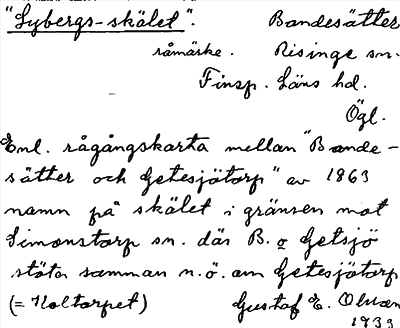 "Lybergs-skälet". Bandesätter
råmärke. Risinge sn.
Finsp. Läns hd.
Ögl.
Enl. rågångskarta mellan "Bande-
sätter och Getesjötorp" av 1863
namn på skälet i gränsen mot
Simonstorp sn. där B. o Getsjö
stöta samman n.ö. om Getesjötorp
(= Koltorpet) Gustaf E.
1933